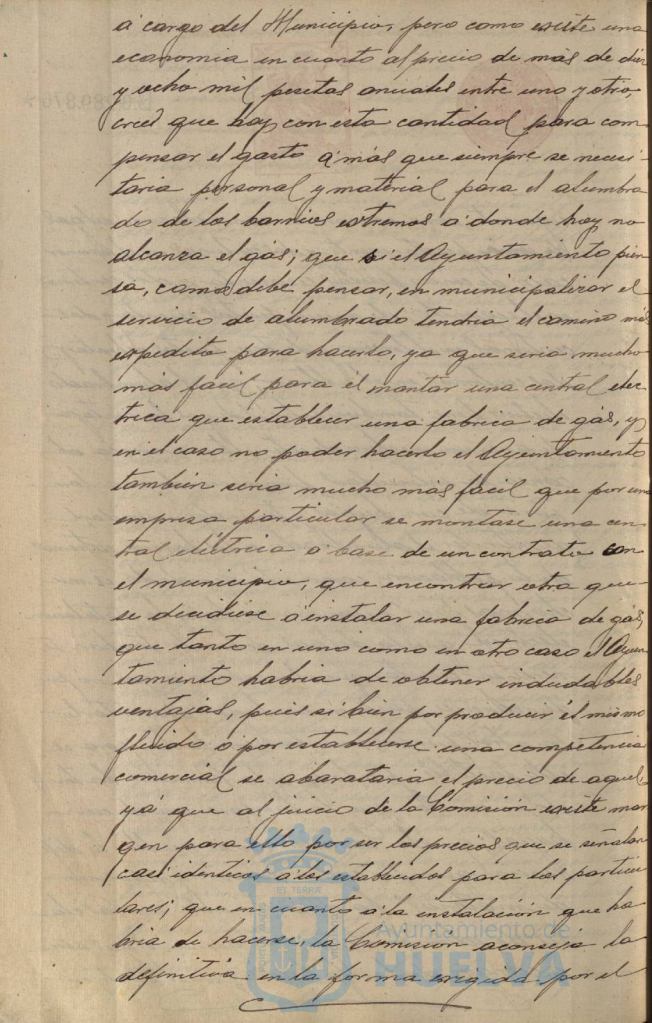 á cargo del Municipio, pero como existe una
economia en cuanto al precio de más de diez
y ocho mil pesetas anuales entre uno y otro,
cree que hay con esta cantidad para com
pensar el gasto á más que siempre se necesi-
taria personal y material para el alumbra
do de los barrios extremos á donde hoy no
alcanza el gás; que si el Ayuntamiento pien
sa, como debe pensar, en municipalizar el
servicio de alumbrado tendria el camino más
expedito para hacerlo, ya que seria mucho
más facil para él montar una central elec
trica que establecer una fabrica de gás, y
en el caso no poder hacerlo el Ayuntamiento
tambien seria mucho más facil que por una
empresa particular se montase una cen
tral eléctrica á base de un contrato con
el municipio, que encontrar otra que
se decidiese á instalar una fabrica de gás,
que tanto en uno como en otro caso el Ayun
tamiento habria de obtener indudables
ventajas, pues si bien por producir él mismo
fluido ó por establecerse una competencia
comercial se abarataria el precio de aquel,
yá que al juicio de la Comisión existe mar
gen para ello por ser los precios que se señalan
casi identicos á los establecidos para los particu
lares; que en cuanto á la instalación que ha
bria de hacerse, la Comision aconseja la
definitiva en la forma exigida por el
ET TERRÆ
Ayuntamiento de
HUELVA